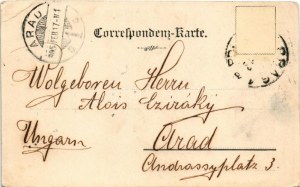 Correspondenz-Karte.
ARAD
Wolgeboren Herrn
Alois
Ungarn
Arad
Andrassyplatz 3.